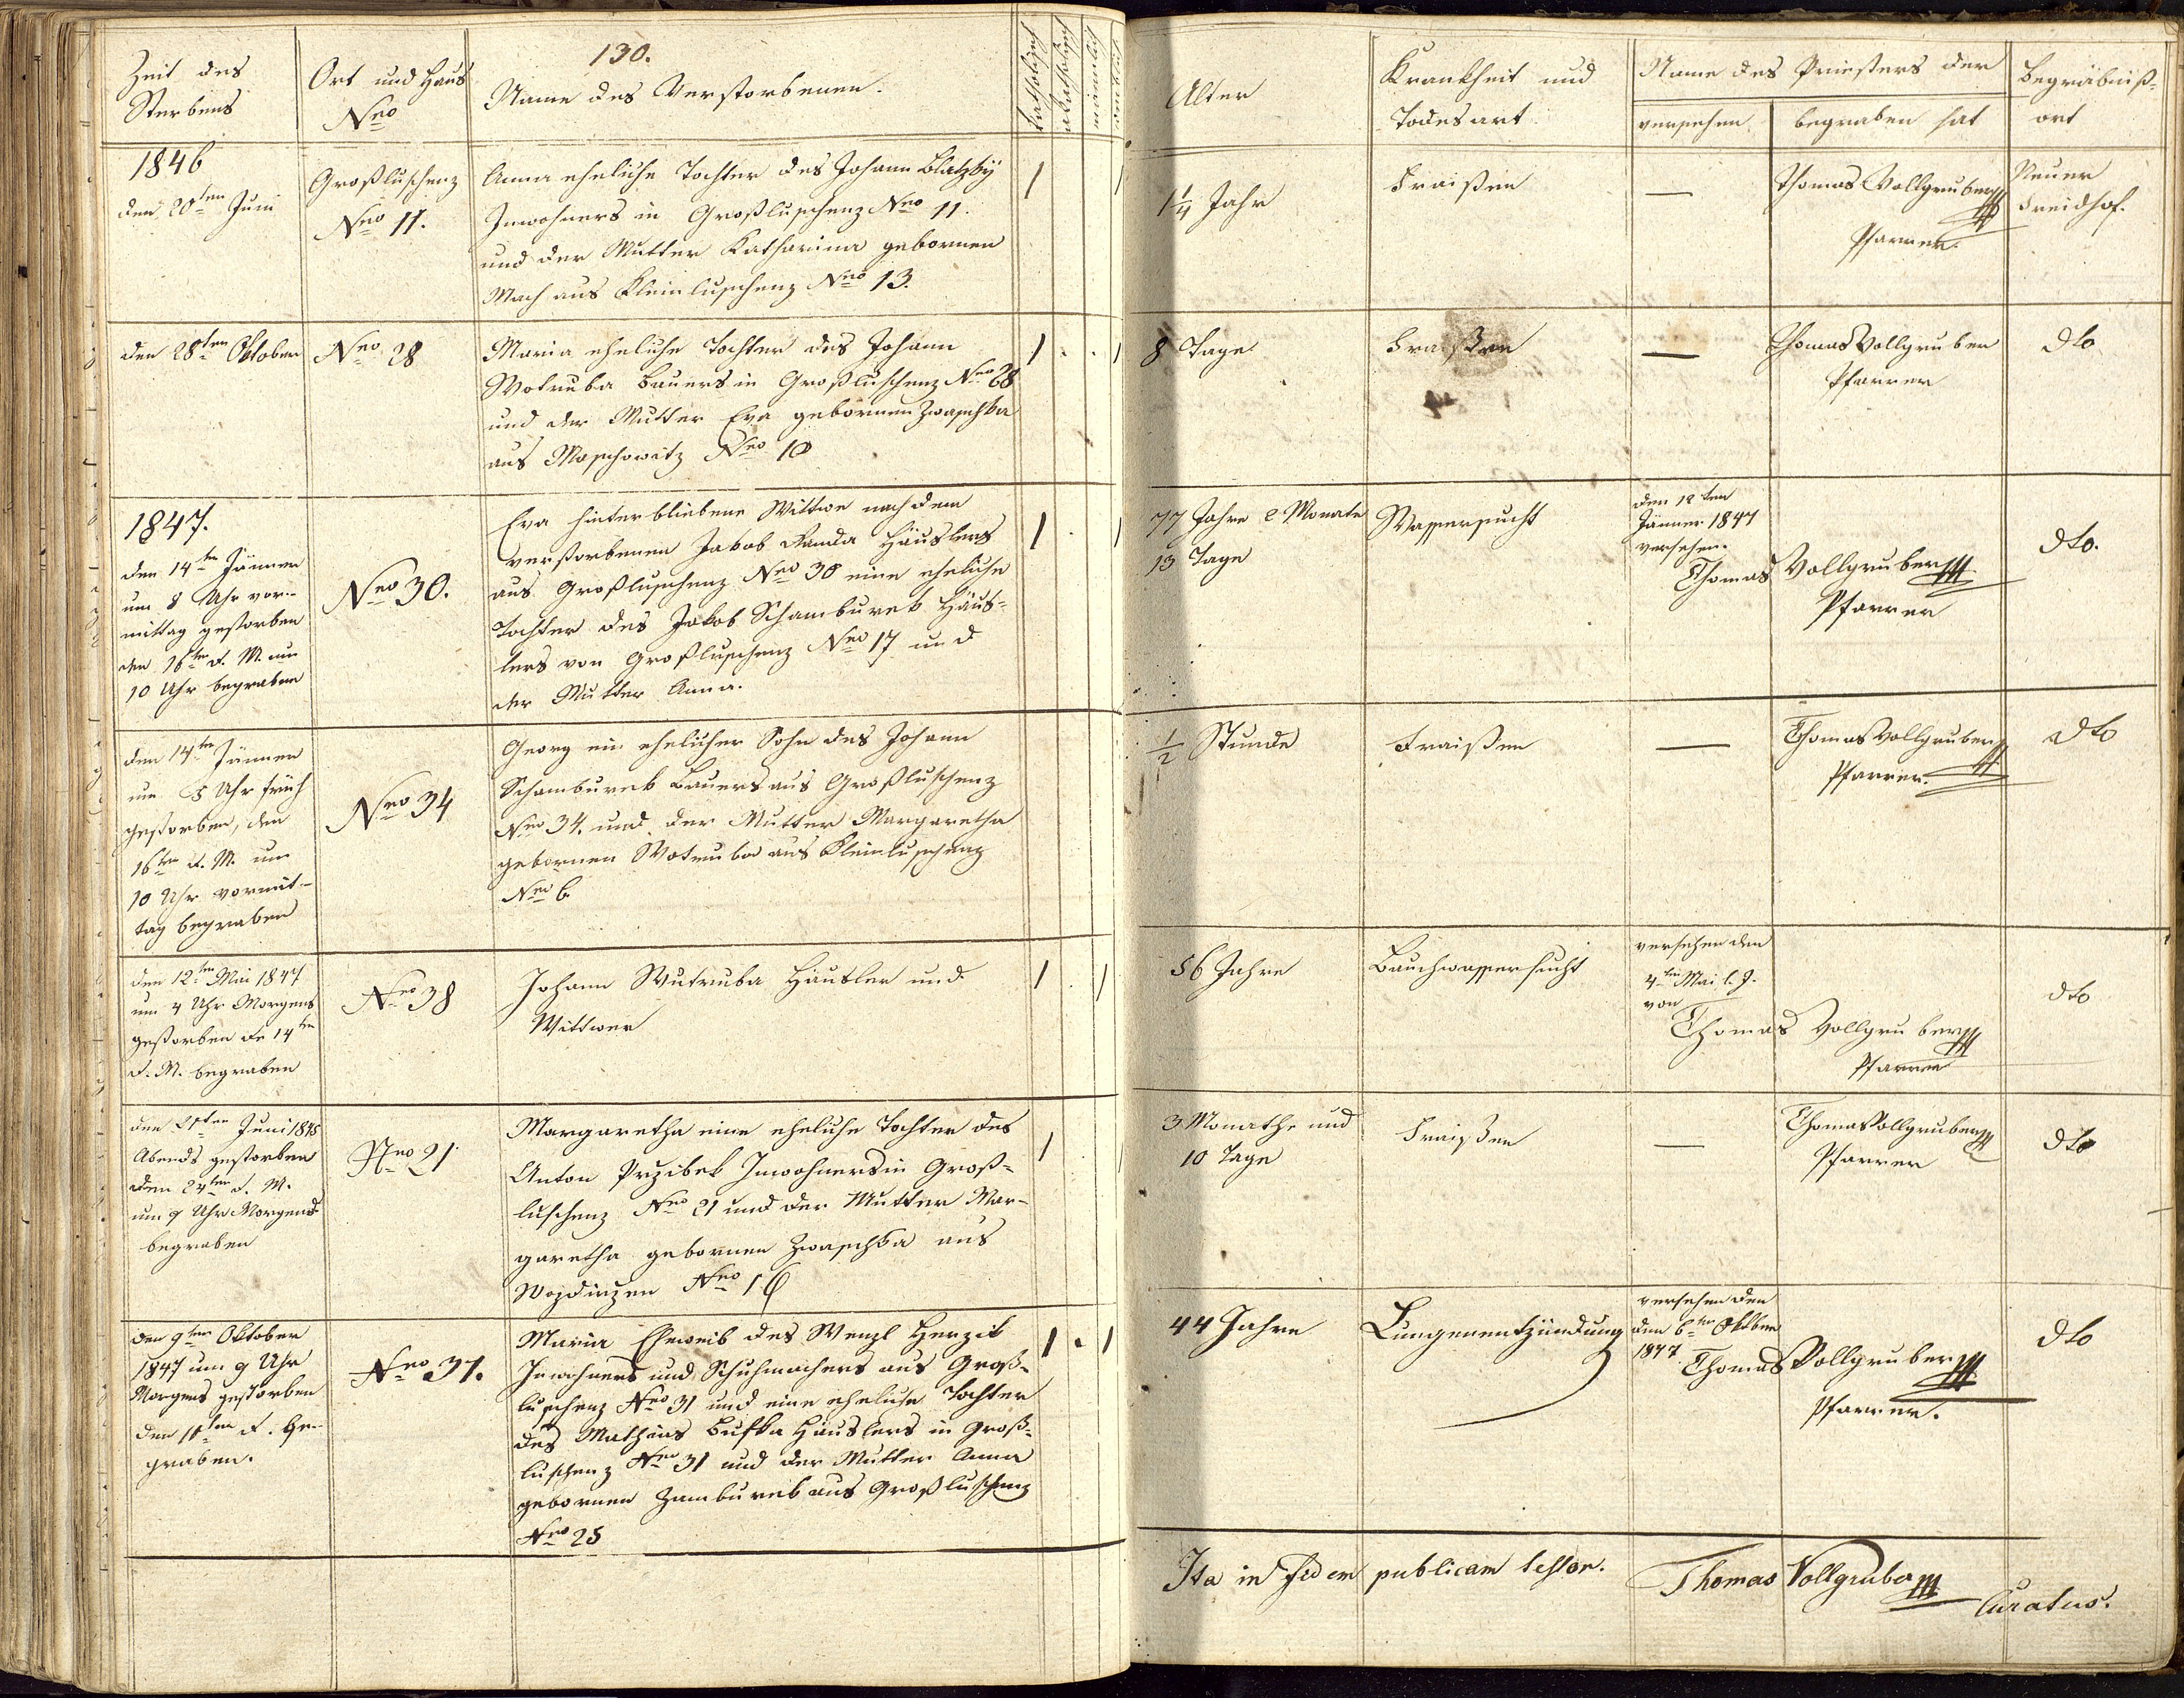 130.
Zeit des
Sterbens
Ort und Haus
Nro
Name des Verstorbenen.
katholisch
akatholisch
männlich
weiblich
Alter
Krankheit und
Todesart
Name des Priesters der
versehen
begraben hat
Begräbniß-
ort
1846
den 20ten Juni
Großluschenz
Nro 11.
Anna eheliche Tochter des Johann Blatzky
Inwohners in Großluschenz Nro 11.
und der Mutter Katharina gebornen
Mach aus Kleinluschenz Nro 13.
1 1
1¼ Jahr
Fraißen
—
Thomas Vollgruber
Pfarrer
Neuer
Freidhof.
den 28ten Oktober
Nro 28
Maria eheliche Tochter des Johann
Wotruba Bauers in Großluschenz Nro 28
und der Mutter Eva gebornen Zwaschka
aus Moschowitz Nro 10
1 . . 1
8 Tage
Fraißen
—
Thomas Vollgruber
Pfarrer
dto
1847.
den 14ten Jänner
um 8 Uhr vor-
mittag gestorben
den 16ten d. M. um
10 Uhr begraben
Nro 30.
Eva hinterbliebene Wittwe nach dem
verstorbenen Jakob Panda Häuslers
aus Großluschenz Nro 30 eine eheliche
Tochter des Jakob Schamburek Häus-
lers von Großluschenz Nro 17 und
der Mutter Anna.
1 . 1
77 Jahre 2 Monate
13 Tage
Wassersucht
den 12ten
Jänner 1847
versehen.
Thomas Vollgruber
Pfarrer
dto.
den 14ten Jänner
um 3 Uhr früh
gestorben, den
16ten d. M. um
10 Uhr vormit-
tag begraben
Nro 34
Georg ein ehelicher Sohn des Johann
Schamburek Bauers aus Großluschenz
Nro 34. und der Mutter Margaretha
gebornen Wotruba aus Kleinluschenz
Nro 6
½ Stunde
Fraißen
—
Thomas Vollgruber
Pfarrer
dto
den 12ten Mai 1847
um 4 Uhr Morgens
gestorben de 14ten
d. M. begraben
Nro 38
Johann Wutruba Häusler und
Wittwer
1 . 1
56 Jahre
Bauchwassersucht
versehen den
4ten Mai l. J.
von
Thomas Vollgruber
Pfarrer
dto
den 21ten Juni
Abends gestorben
den 24ten d. M.
um 9 Uhr Morgens
begraben
Nro 21
Margaretha eine eheliche Tochter des
Anton Przibek Inwohners in Groß-
luschenz Nro 21 und der Mutter Mar-
garetha gebornen Zwaschka aus
Wozdirzen Nro 16
1 1
3 Monathe und
10 Tage
Fraißen
—
Thomas Vollgruber
Pfarrer
dto
den 9ten Oktober
1847 um 9 Uhr
Morgens gestorben
den 11ten d. be-
graben.
Nro 31.
Maria Eheweib des Wenzl Herzik
Inwohners und Schuhmachers aus Groß-
luschenz Nro 31 und eine eheliche Tochter
des Mathias Bufka Häuslers in Groß-
luschenz Nro 31 und der Mutter Anna
gebornen Zamburek aus Großluschenz
Nro 25
1 . 1
44 Jahre
Lungenentzündung
versehen den
den 6ten Oktber
1847
Thomas Vollgruber
Pfarrer.
dto
Ita in fidem publicam testor.
Thomas Vollgruber
Curatus.